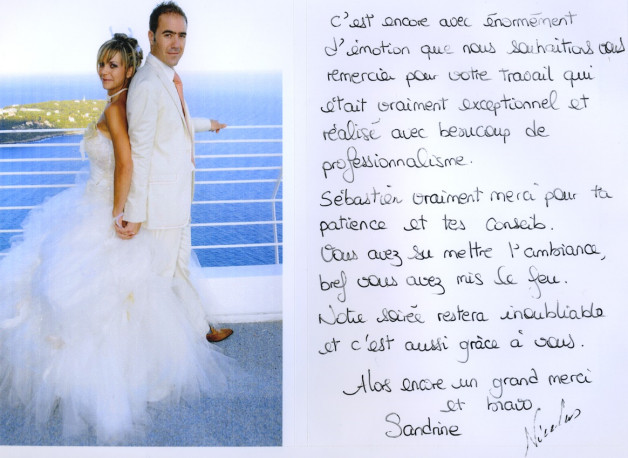 C'est encore avec énormément
d'émotion que nous souhaitions vous
remercier pour votre travail qui
était vraiment exceptionnel et
réalisé avec beaucoup de
professionnalisme.
Sébastien vraiment merci pour ta
patience et tes conseils.
Vous avez su mettre l'ambiance,
bref vous avez mis le feu.
Notre soirée restera inoubliable
et c'est aussi grâce à vous.
Alors encore un grand merci
et bravo
Sandrine Nicolas